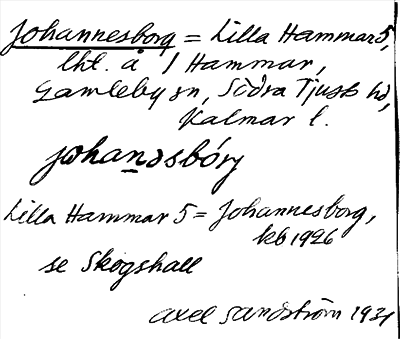 Johannesborg = Lilla Hammar 5,
lht. å 1 Hammar,
Gamleby sn, Södra Tjust hd,
Kalmar l.
johanəsbórj
Lilla Hammar 5 = Johannesborg,
kb 1926
se Skogshall
Axel Sandström 1931